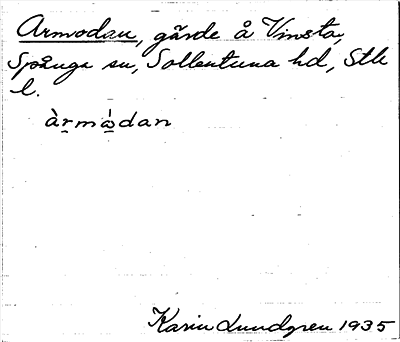 Armodan, gärde å Vinsta,
Spånga sn, Sollentuna hd, Sthlm
l.
àrmὼdan
Karin Lundgren 1935